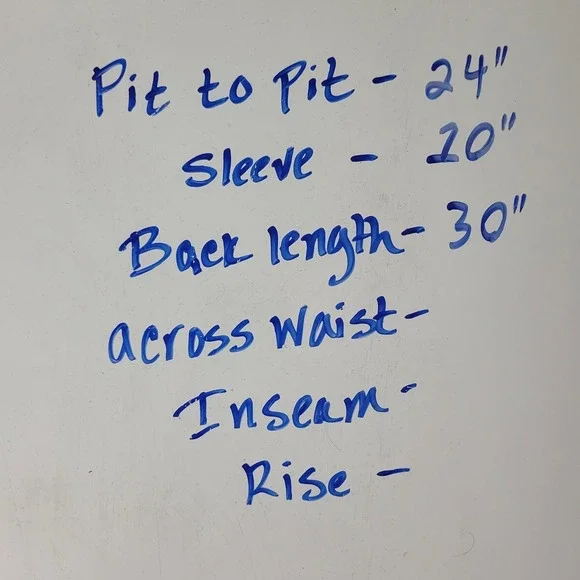 Pit to Pit - 24"
Sleeve - 10"
Back length - 30"
across Waist -
Inseam -
Rise -